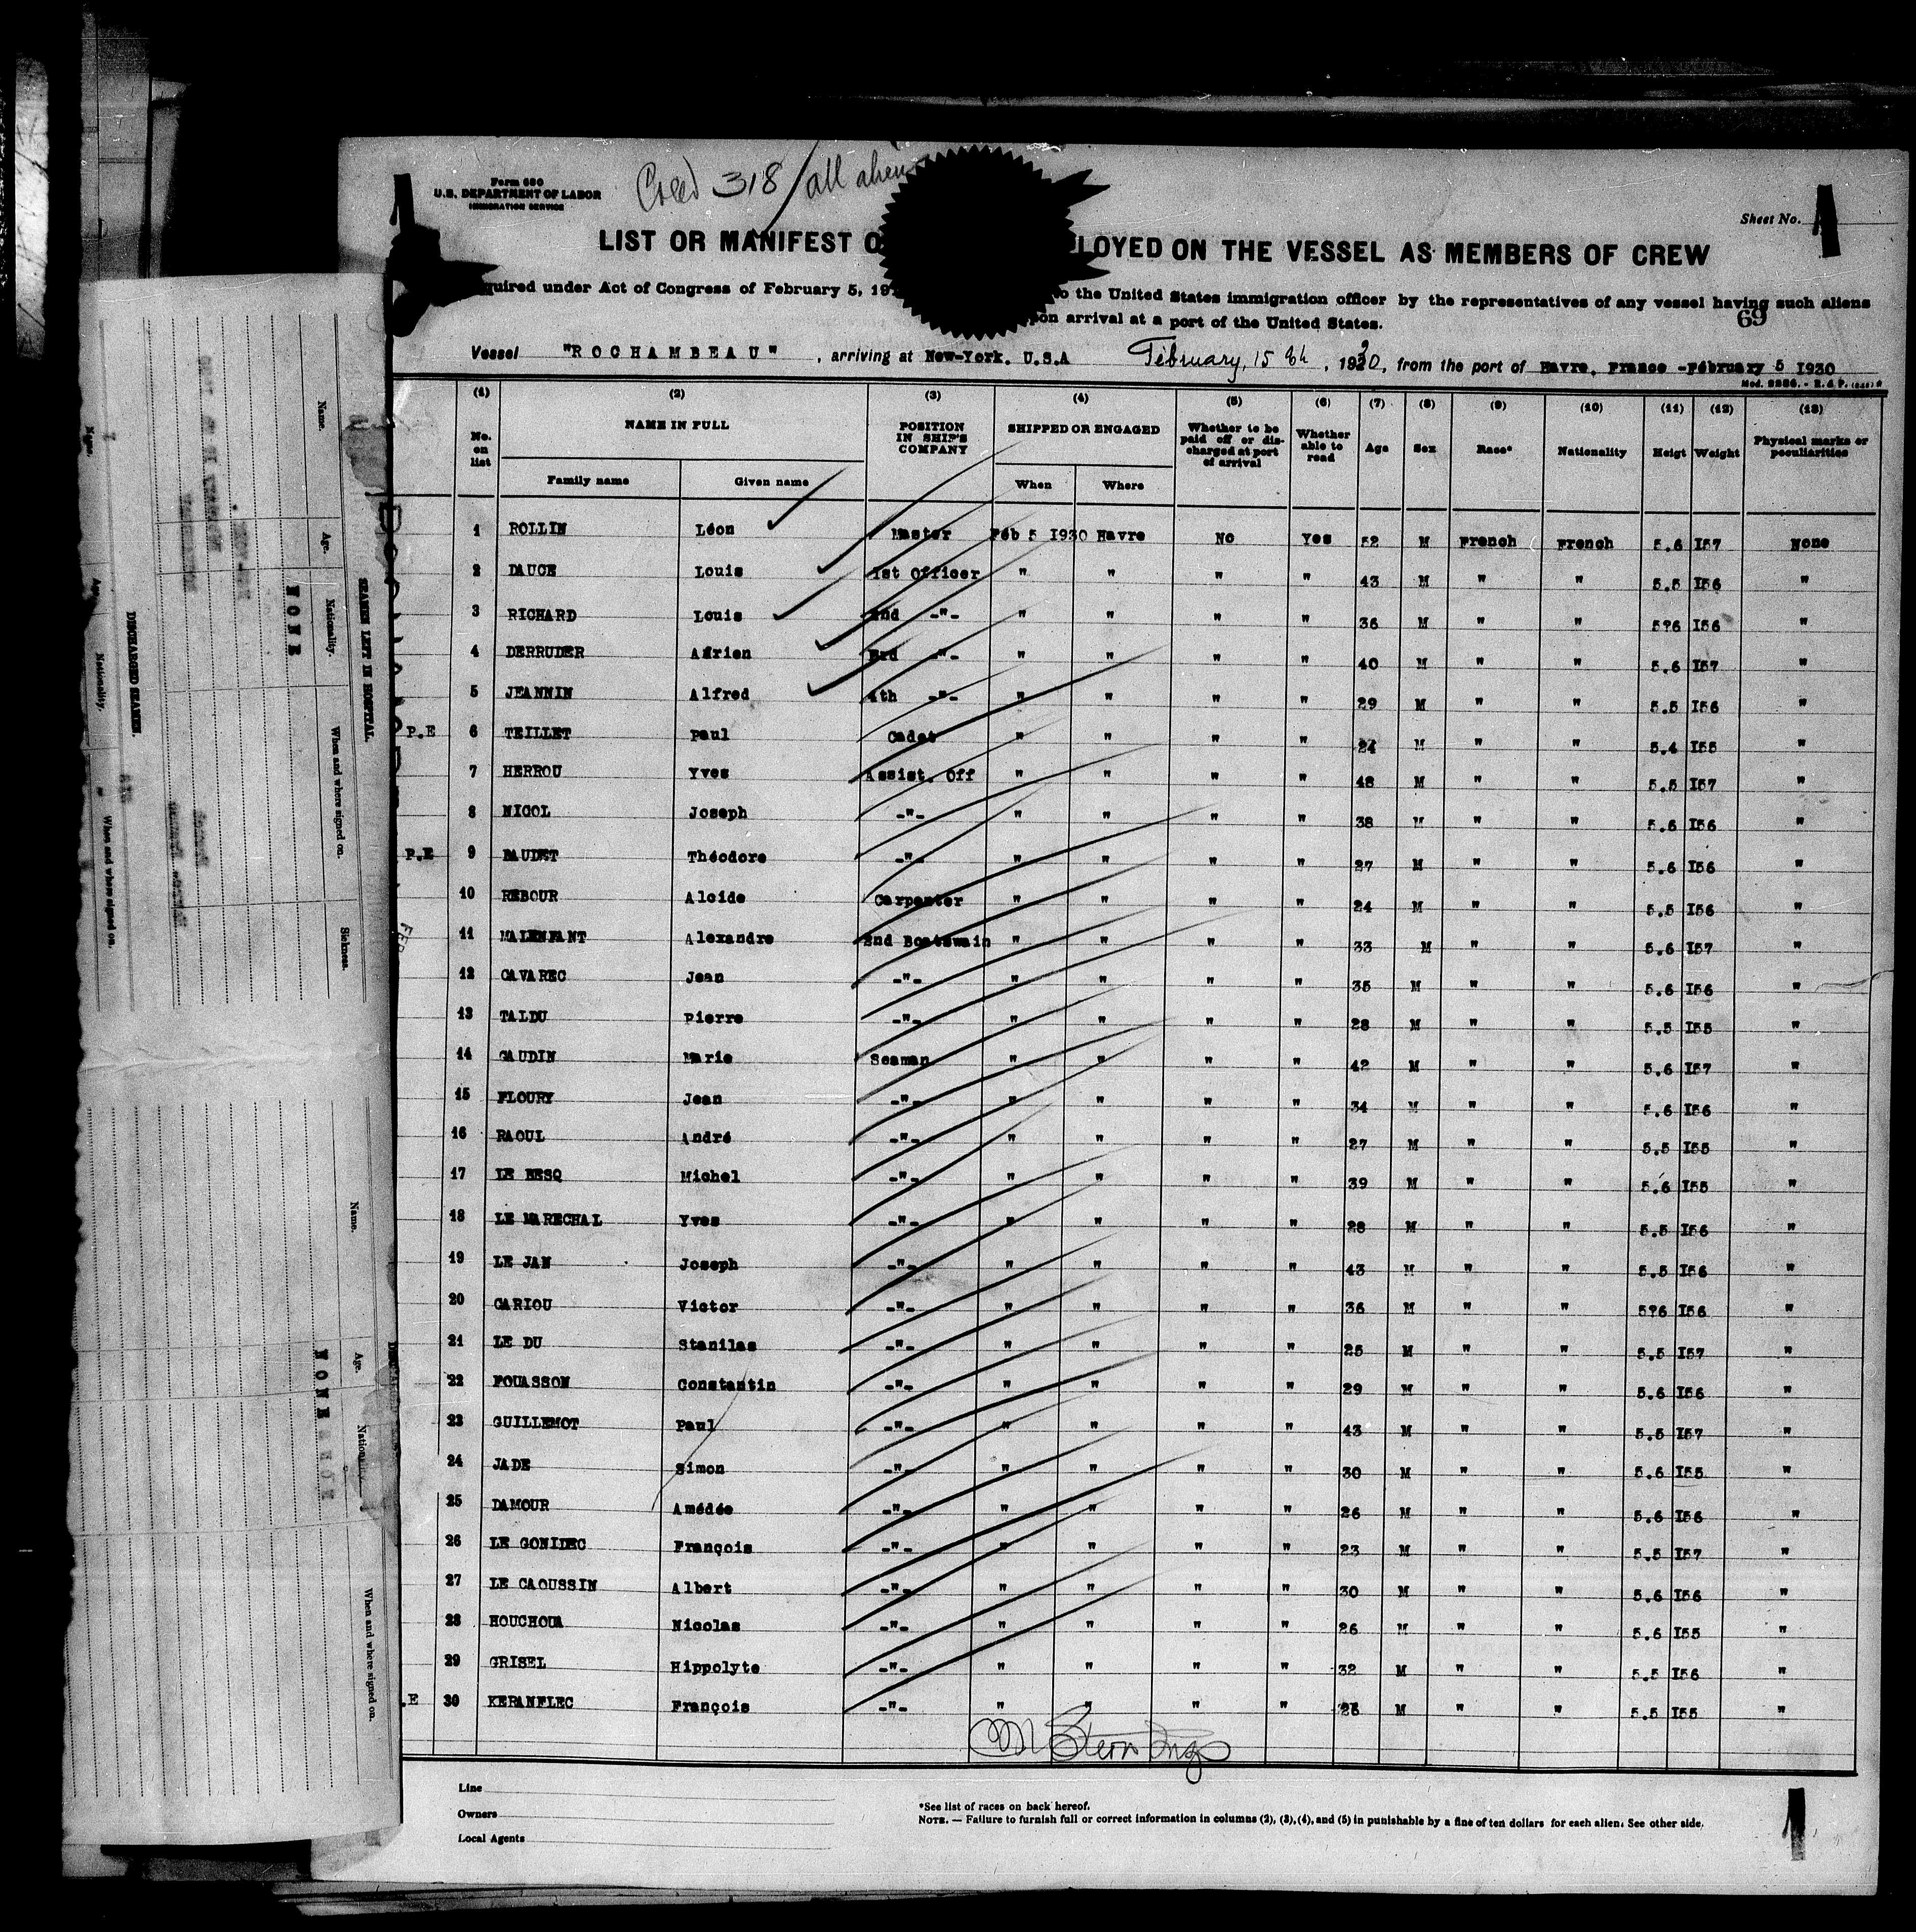 Form 680
U.S. DEPARTMENT OF LABOR
IMMIGRATION SERVICE
318 / all alien
Sheet No. 1
LIST OR MANIFEST O LOYED ON THE VESSEL AS MEMBERS OF CREW
quired under Act of Congress of February 5, 19 o the United States immigration officer by the representatives of any vessel having such aliens
pon arrival at a port of the United States.
69
Vessel "ROCHAMBEAU", arriving at New-York. U.S.A February, 15 th, 1930, from the port of Havre, France -February 5 1930
(1) (2) (3) (4) (5) (6) (7) (8) (9) (10) (11) (12) (13)
No. on list NAME IN FULL POSITION IN SHIP'S COMPANY SHIPPED OR ENGAGED Whether to be paid off or discharged at port of arrival Whether able to read Age Sex Race* Nationality Heigt Weight Physical marks or peculiarities
Family name Given name When Where
1 ROLLIN Léon Master Feb 5 1930 Havre No Yes 52 M French French 5.6 I57 None
2 DAUCE Louis 1st Officer " " " " 43 M " " 5.5 I56 "
3 RICHARD Louis 2nd -"- " " " " 36 M " " 5?6 I56 "
4 DERRUDER Adrien 3rd -"- " " " " 40 M " " 5.6 I57 "
5 JEANNIN Alfred 4th -"- " " " " 29 M " " 5.5 I56 "
P.E 6 TEILLET Paul Cadet " " " " 24 M " " 5.4 I55 "
7 HERROU Yves Assist. Off " " " " 48 M " " 5.5 I57 "
8 NICOL Joseph -"- " " " " 38 M " " 5.6 I56 "
P.E 9 BAUDET Théodore -"- " " " " 27 M " " 5.6 I56 "
10 REBOUR Alcide Carpenter " " " " 24 M " " 5.5 I56 "
11 MALENFANT Alexandre 2nd Boatswain " " " " 33 M " " 5.6 I57 "
12 CAVAREC Jean -"- " " " " 35 M " " 5.6 I56 "
13 TALDU Pierre -"- " " " " 28 M " " 5.5 I55 "
14 GAUDIN Marie Seaman " " " " 42 M " " 5.6 I57 "
15 FLOURY Jean -"- " " " " 34 M " " 5.6 I56 "
16 RAOUL André -"- " " " " 27 M " " 5.5 I55 "
17 LE BESQ Michel -"- " " " " 39 M " " 5.6 I55 "
18 LE MARECHAL Yves -"- " " " " 28 M " " 5.5 I56 "
19 LE JAN Joseph -"- " " " " 43 M " " 5.5 I56 "
20 CARIOU Victor -"- " " " " 36 M " " 5?6 I56 "
21 LE DU Stanilas -"- " " " " 25 M " " 5.5 I57 "
22 FOUASSON Constantin -"- " " " " 29 M " " 5.6 I56 "
23 GUILLEMOT Paul -"- " " " " 43 M " " 5.5 I57 "
24 JADE Simon -"- " " " " 30 M " " 5.6 I55 "
25 DAMOUR Amédée -"- " " " " 26 M " " 5.6 I56 "
26 LE GONIDEC François -"- " " " " 23 M " " 5.5 I57 "
27 LE CAOUSSIN Albert -"- " " " " 30 M " " 5.6 I56 "
28 HOUCHOUA Nicolas -"- " " " " 26 M " " 5.6 I55 "
29 GRISEL Hippolyte -"- " " " " 32 M " " 5.5 I56 "
.E 30 KERANFLEC François -"- " " " " M " " 5.5 I55 "
Line
Owners
Local Agents
*See list of races on back hereof.
NOTE. — Failure to furnish full or correct information in columns (2), (3), (4), and (5) in punishable by a fine of ten dollars for each alien. See other side.
1
SEAMEN LEFT IN HOSPITAL.
Name. Age. Nationality. When and where signed on. Sickness.
NONE
DISCHARGED SEAMEN.
Name. Age. Nationality. When and where signed on.
Name. Age. Nationality. When and where signed on.
NONE